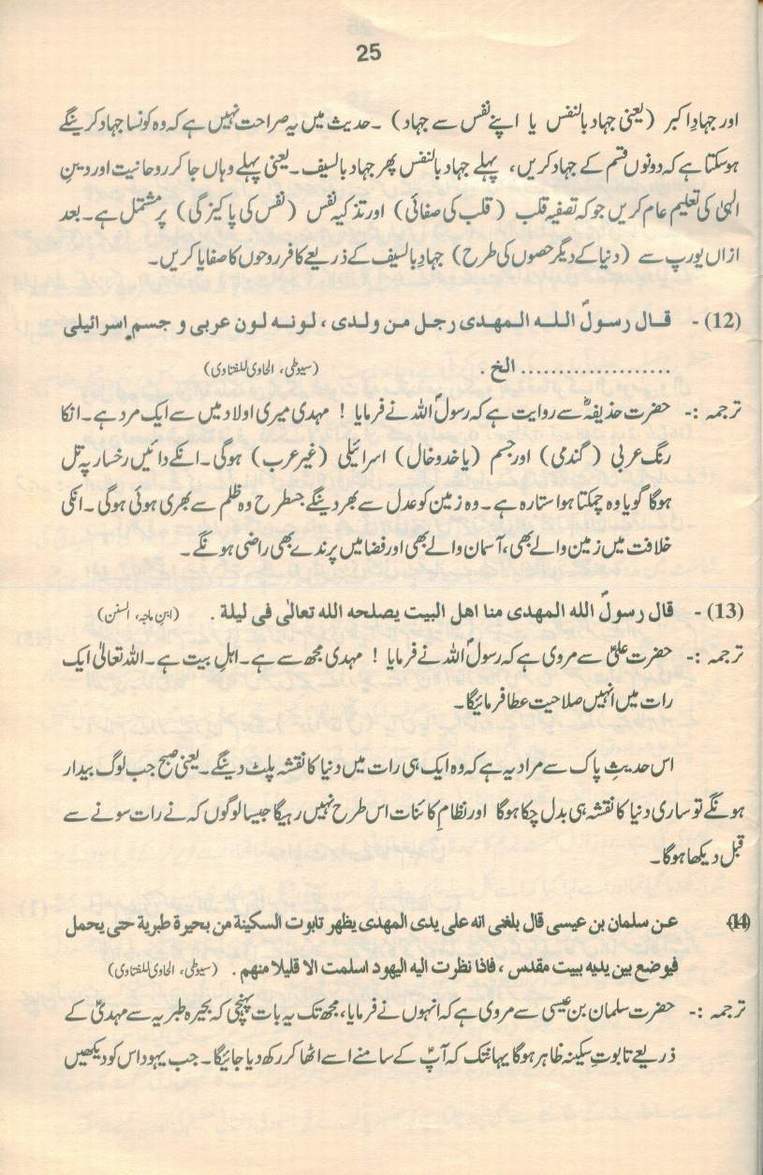 25
اور جہادِ اکبر (یعنی جہاد بالنفس یا اپنے نفس سے جہاد) ۔ حدیث میں یہ صراحت نہیں ہے کہ وہ کونسا جہاد کرینگے
ہوسکتا ہے کہ دونوں قسم کے جہاد کریں، پہلے جہاد بالنفس پھر جہاد بالسیف۔ یعنی پہلے وہاں جا کر روحانیت اور دینِ
الٰہی کی تعلیم عام کریں جو کہ تصفیہ قلب (قلب کی صفائی) اور تذکیہ نفس (نفس کی پاکیزگی) پر مشتمل ہے۔ بعد
ازاں یورپ سے (دنیا کے دیگر حصوں کی طرح) جہادِ بالسیف کے ذریعے کافر روحوں کا صفایا کریں۔
(12)- قال رسولؐ اللہ المہدی رجل من ولدی ، لونہ لون عربی و جسم اسرائیلی
................... الخ . (سیوطی، الحاوی للفتاوی)
ترجمہ :- حضرت حذیفہؓ سے روایت ہے کہ رسولؐ اللہ نے فرمایا ! مہدی میری اولاد میں سے ایک مرد ہے۔ انکا
رنگ عربی (گندمی) اور جسم (یا خدوخال) اسرائیلی (غیر عرب) ہوگی۔ انکے دائیں رخسار پہ تل
ہوگا گویا وہ چمکتا ہوا ستارہ ہے۔ وہ زمین کو عدل سے بھر دینگے جسطرح وہ ظلم سے بھری ہوئی ہوگی۔ انکی
خلافت میں زمین والے بھی، آسمان والے بھی اور فضا میں پرندے بھی راضی ہونگے۔
(13)- قال رسولؐ الله المهدی منا اهل البیت یصلحه الله تعالٰی فی لیلة . (ابن ماجہ، السنن)
ترجمہ :- حضرت علیؓ سے مروی ہے کہ رسولؐ اللہ نے فرمایا ! مہدی مجھ سے ہے۔ اہلِ بیت ہے۔ اللہ تعالیٰ ایک
رات میں انہیں صلاحیت عطا فرمائیگا۔
اس حدیثِ پاک سے مراد یہ ہے کہ وہ ایک ہی رات میں دنیا کا نقشہ پلٹ دینگے۔ یعنی صبح جب لوگ بیدار
ہونگے تو ساری دنیا کا نقشہ ہی بدل چکا ہوگا اور نظامِ کائنات اس طرح نہیں رہیگا جیسا لوگوں کہ نے رات سونے سے
قبل دیکھا ہوگا۔
(14) عن سلمان بن عیسی قال بلغنی انه علی یدی المهدی یظهر تابوت السکینة من بحیرة طبریة حتی یحمل
فیوضع بین یدیه بیت مقدس ، فاذا نظرت الیه الیهود اسلمت الا قلیلا منهم . (سیوطی، الحاوی للفتاوی)
ترجمہ :- حضرت سلمان بن عیسیٰ سے مروی ہے کہ انہوں نے فرمایا، مجھ تک یہ بات پہنچی کہ بحیرہ طبریہ سے مہدیؑ کے
ذریعے تابوتِ سکینہ ظاہر ہوگا یہانتک کہ آپؑ کے سامنے اسے اٹھا کر رکھ دیا جائیگا۔ جب یہود اس کو دیکھیں